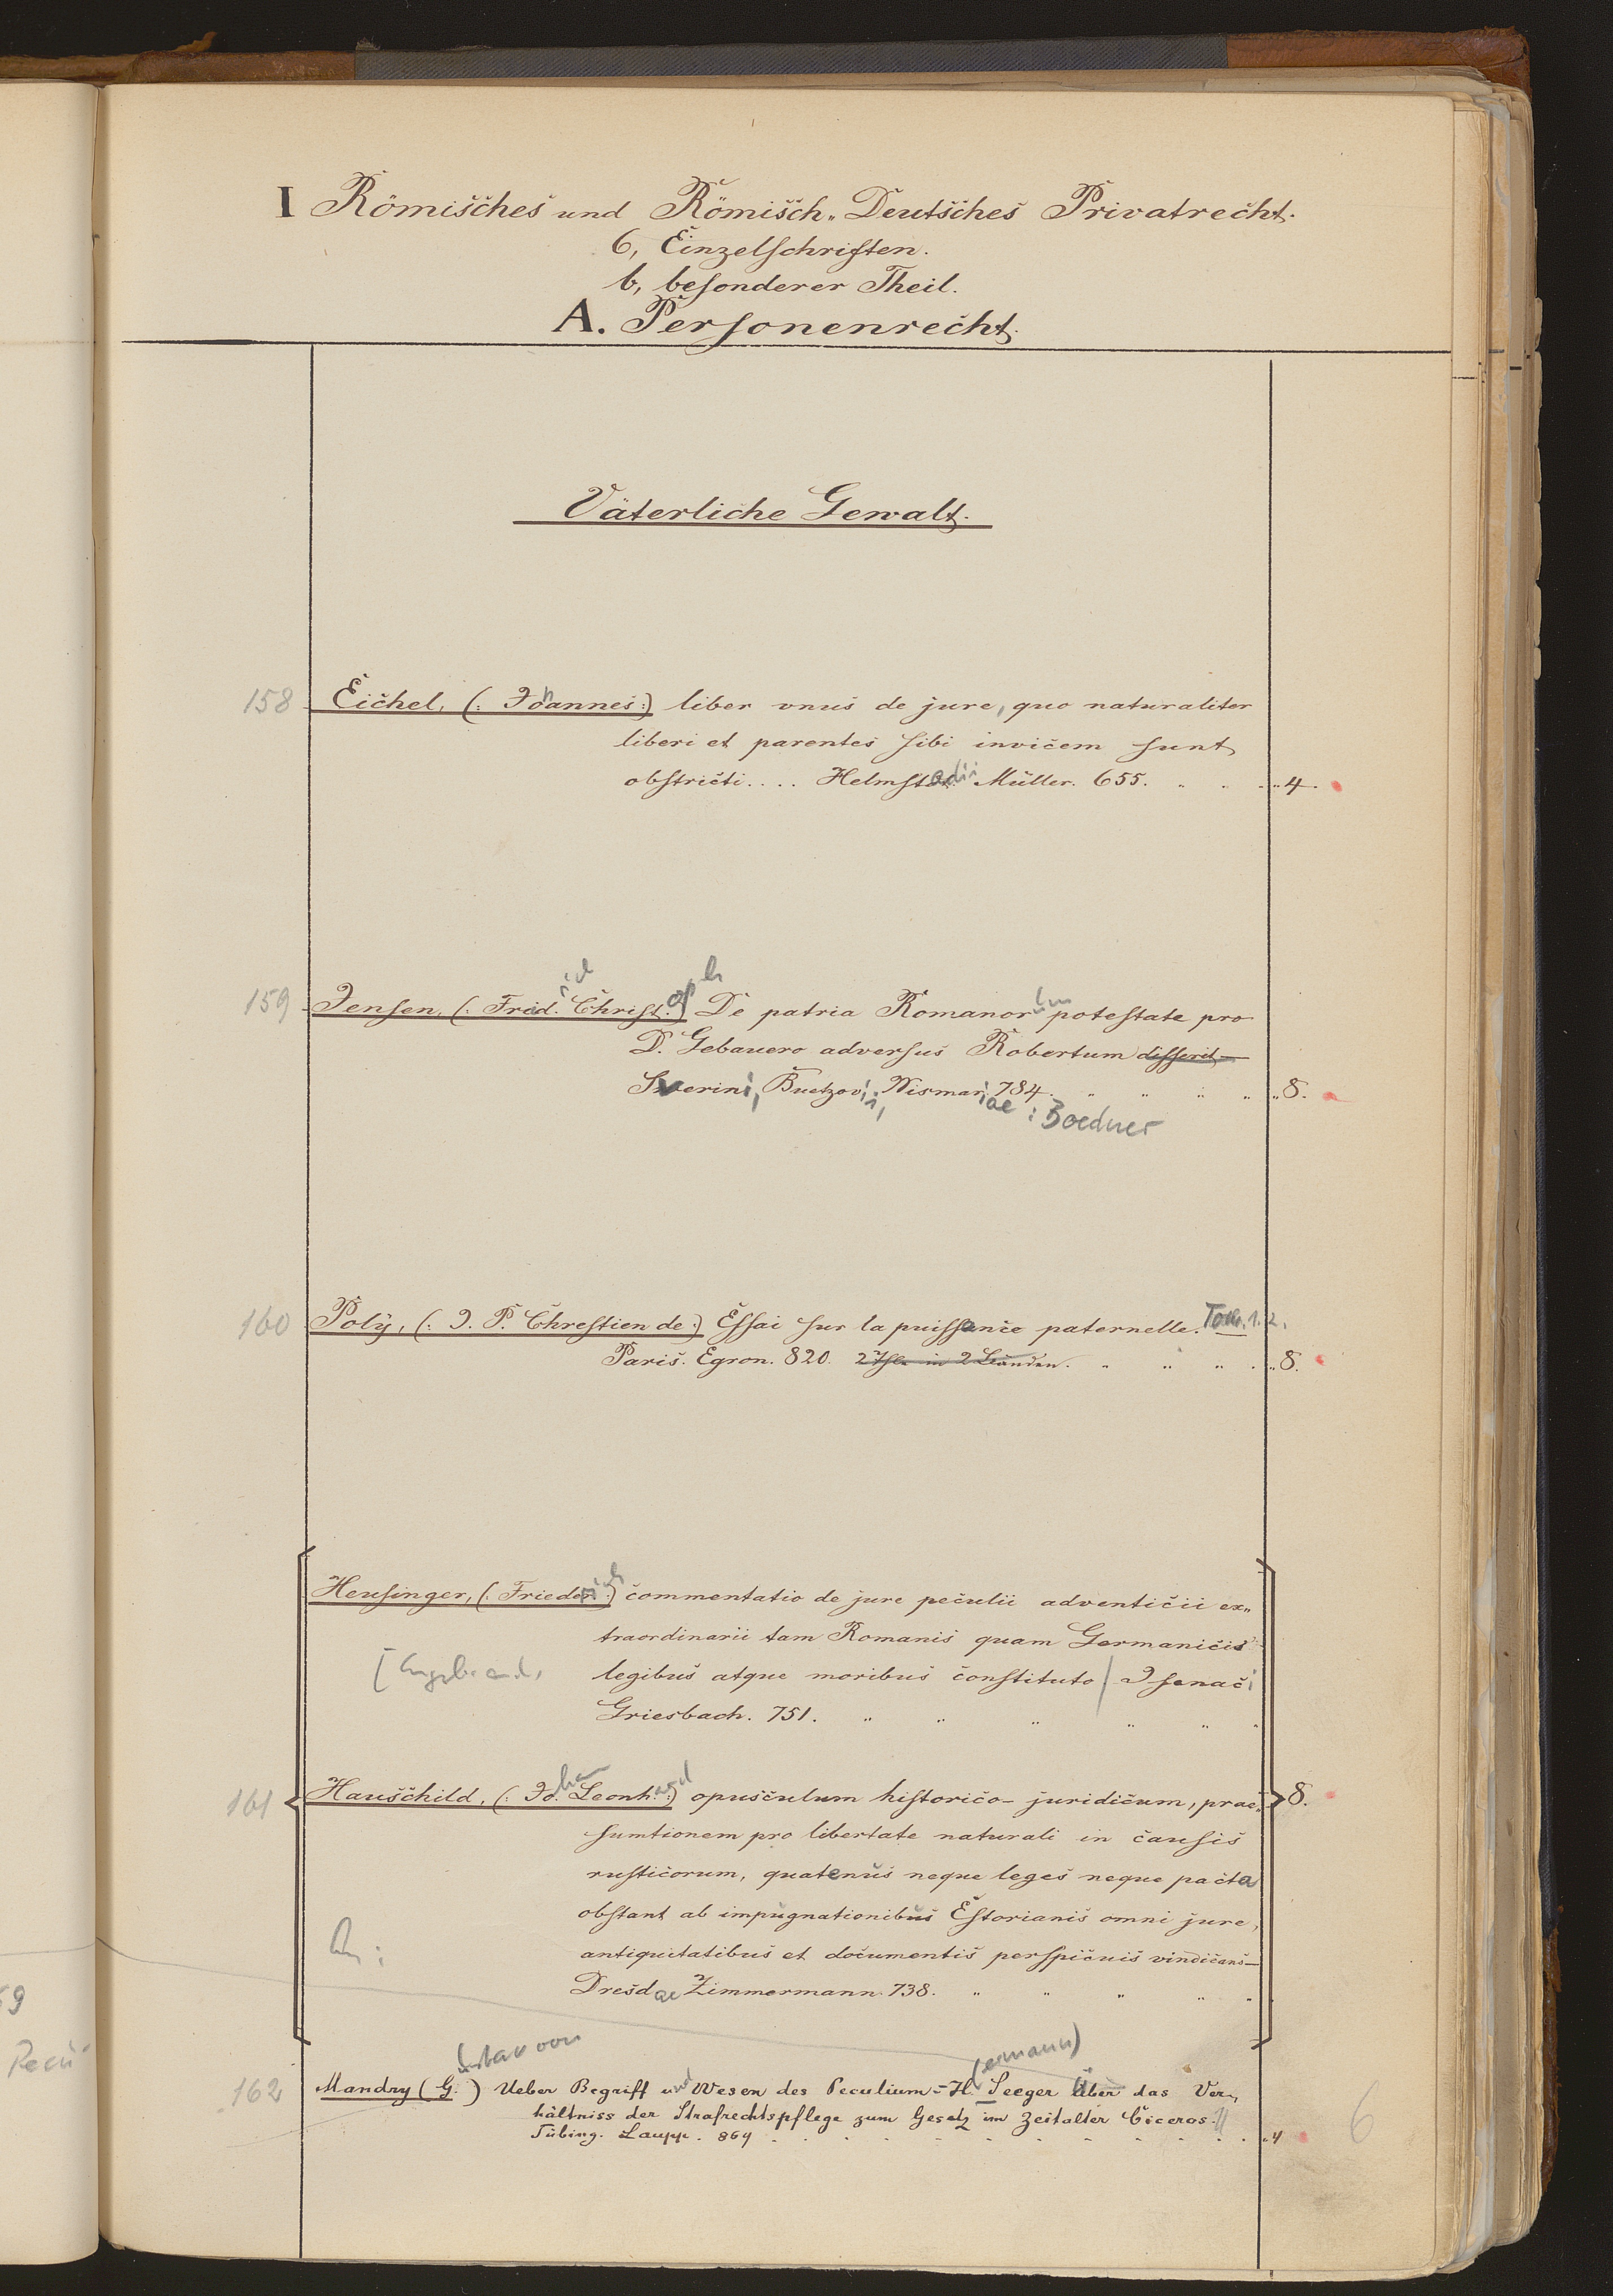 I Römisches und Römisch-Deutsches Privatrecht.
6, Einzelschriften.
b, besonderer Theil.
A. Personenrecht.
Väterliche Gewalt.
158 Eichel, (: Johannes :) liber vnus de jure, quo naturaliter
liberi et parentes sibi invicem sunt
obstricti.... Helmstadii Müller. 655. " " " " 4.
159 Jensen, (: Frid. Christoph :) De patria Romanorum potestate pro
D. Gebauero adversus Robertum disserit
Sverini, Buetzovii, Wismariae 784. " " " " " 8.
: Boedner
160 Poly, (: J. P. Chrestien de :) Essai sur la puissance paternelle. Tom. 1. 2.
Paris. Egron. 820. 2 Thle in 2 Bänden. " " " " " 8.
Heusinger, (: Friederich :) commentatio de jure peculii adventicii ex-
traordinarii tam Romanis quam Germanicis
legibus atque moribus constituto / Isenaci
Griesbach. 751. " " " " " "
161 Hauschild, (: Johan Leonhard :) opusculum historico-juridicum, prae- 8.
sumtionem pro libertate naturali in causis
rusticorum, quatenus neque leges neque pacta
obstant ab impugnationibus Estorianis omni jure,
antiquitatibus et documentis perspicuis vindicans
An:
Dresdae Zimmermann. 738. " " " " "
162 Mandry (Gustav von) Ueber Begriff und Wesen des Peculium = H(ermann) Seeger Über das Ver-
hältniss der Strafrechtspflege zum Gesetz im Zeitalter Ciceros.
Tübing. Laupp. 869 . . . . . . . . . . " 4
6
59
Pecu